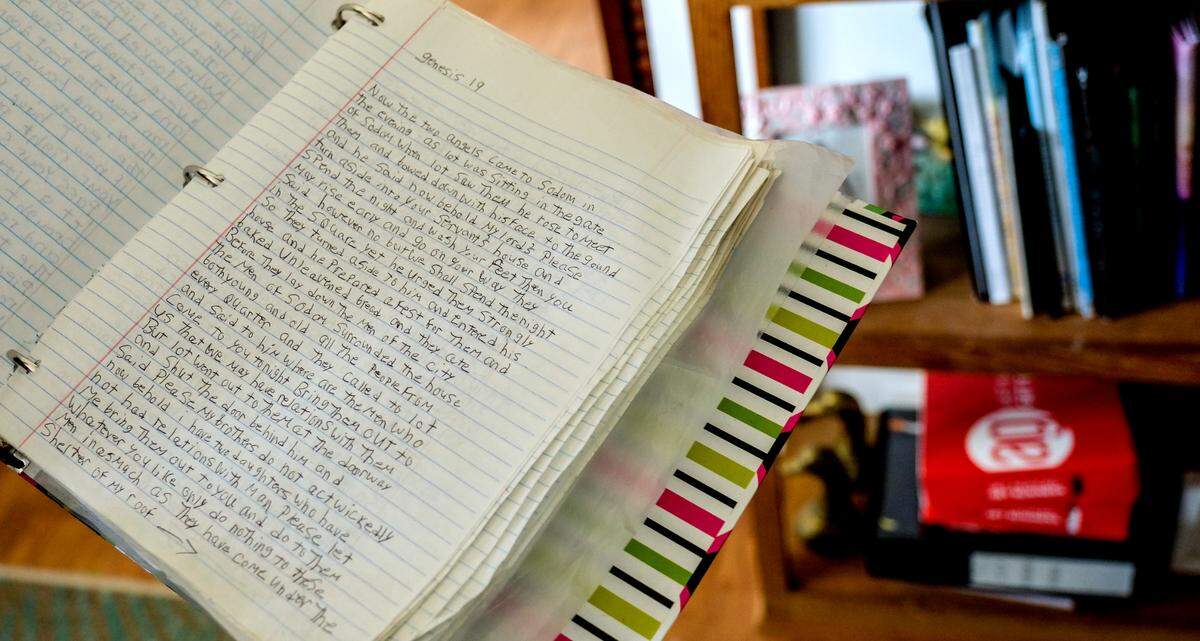 genesis 19
Now the two angels came to Sodom in
the evening as lot was sitting in the gate
of Sodom when lot saw them he rose to meet
Them and bowed down with his face to the ground
and he said now behold my lords please
turn aside into your servant's house and
spend the night and wash your feet then you
may rise early and go on your way they
said however no but we shall spend the night
in the square yet he urged them strongly
So they turned aside to him and entered his
house and he prepared a feast for them and
baked unleavened bread and they ate
Before they lay down the men of the city
the men of Sodom surrounded the house
both young and old all the people from
every quarter and they called to lot
and said to him where are the men who
came to you tonight Bring them out to
us that we may have relations with them
But lot went out to them at the doorway
and shut the door behind him and
said please my brothers do not act wickedly
now behold I have two daughters who have
not had relations with man please let
me bring them out to you and do to them
whatever you like only do nothing to these
men in as much as they have come under the
shelter of my roof →